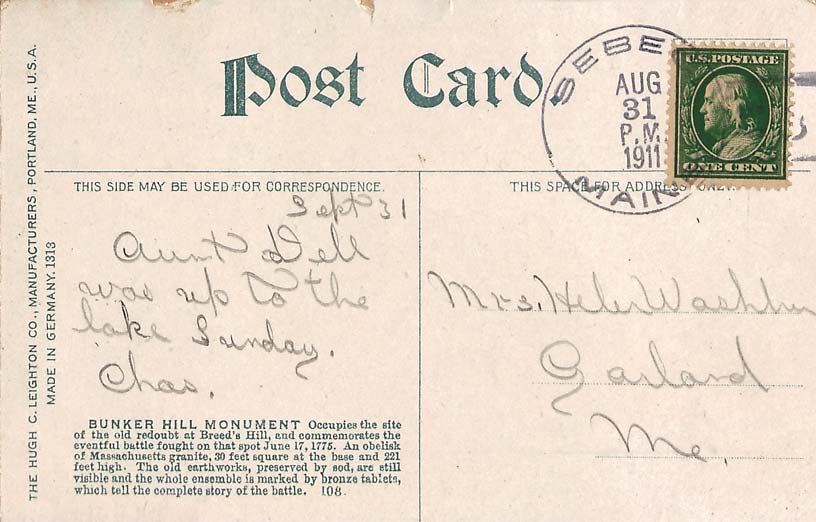 Post Card.
SEBE
AUG
31
P.M.
1911
MAINE
U.S. POSTAGE
ONE CENT
THIS SIDE MAY BE USED FOR CORRESPONDENCE.
THIS SPACE FOR ADDRESS ONLY.
Sept 31
Aunt Dell
was up to the
lake Sunday.
Chas.
Mrs. Helen Washburn
Garland
Me.
BUNKER HILL MONUMENT Occupies the site
of the old redoubt at Breed's Hill, and commemorates the
eventful battle fought on that spot June 17, 1775. An obelisk
of Massachusetts granite, 30 feet square at the base and 221
feet high. The old earthworks, preserved by sod, are still
visible and the whole ensemble is marked by bronze tablets,
which tell the complete story of the battle. 108.
THE HUGH C. LEIGHTON CO., MANUFACTURERS, PORTLAND, ME., U.S.A.
MADE IN GERMANY. 1313